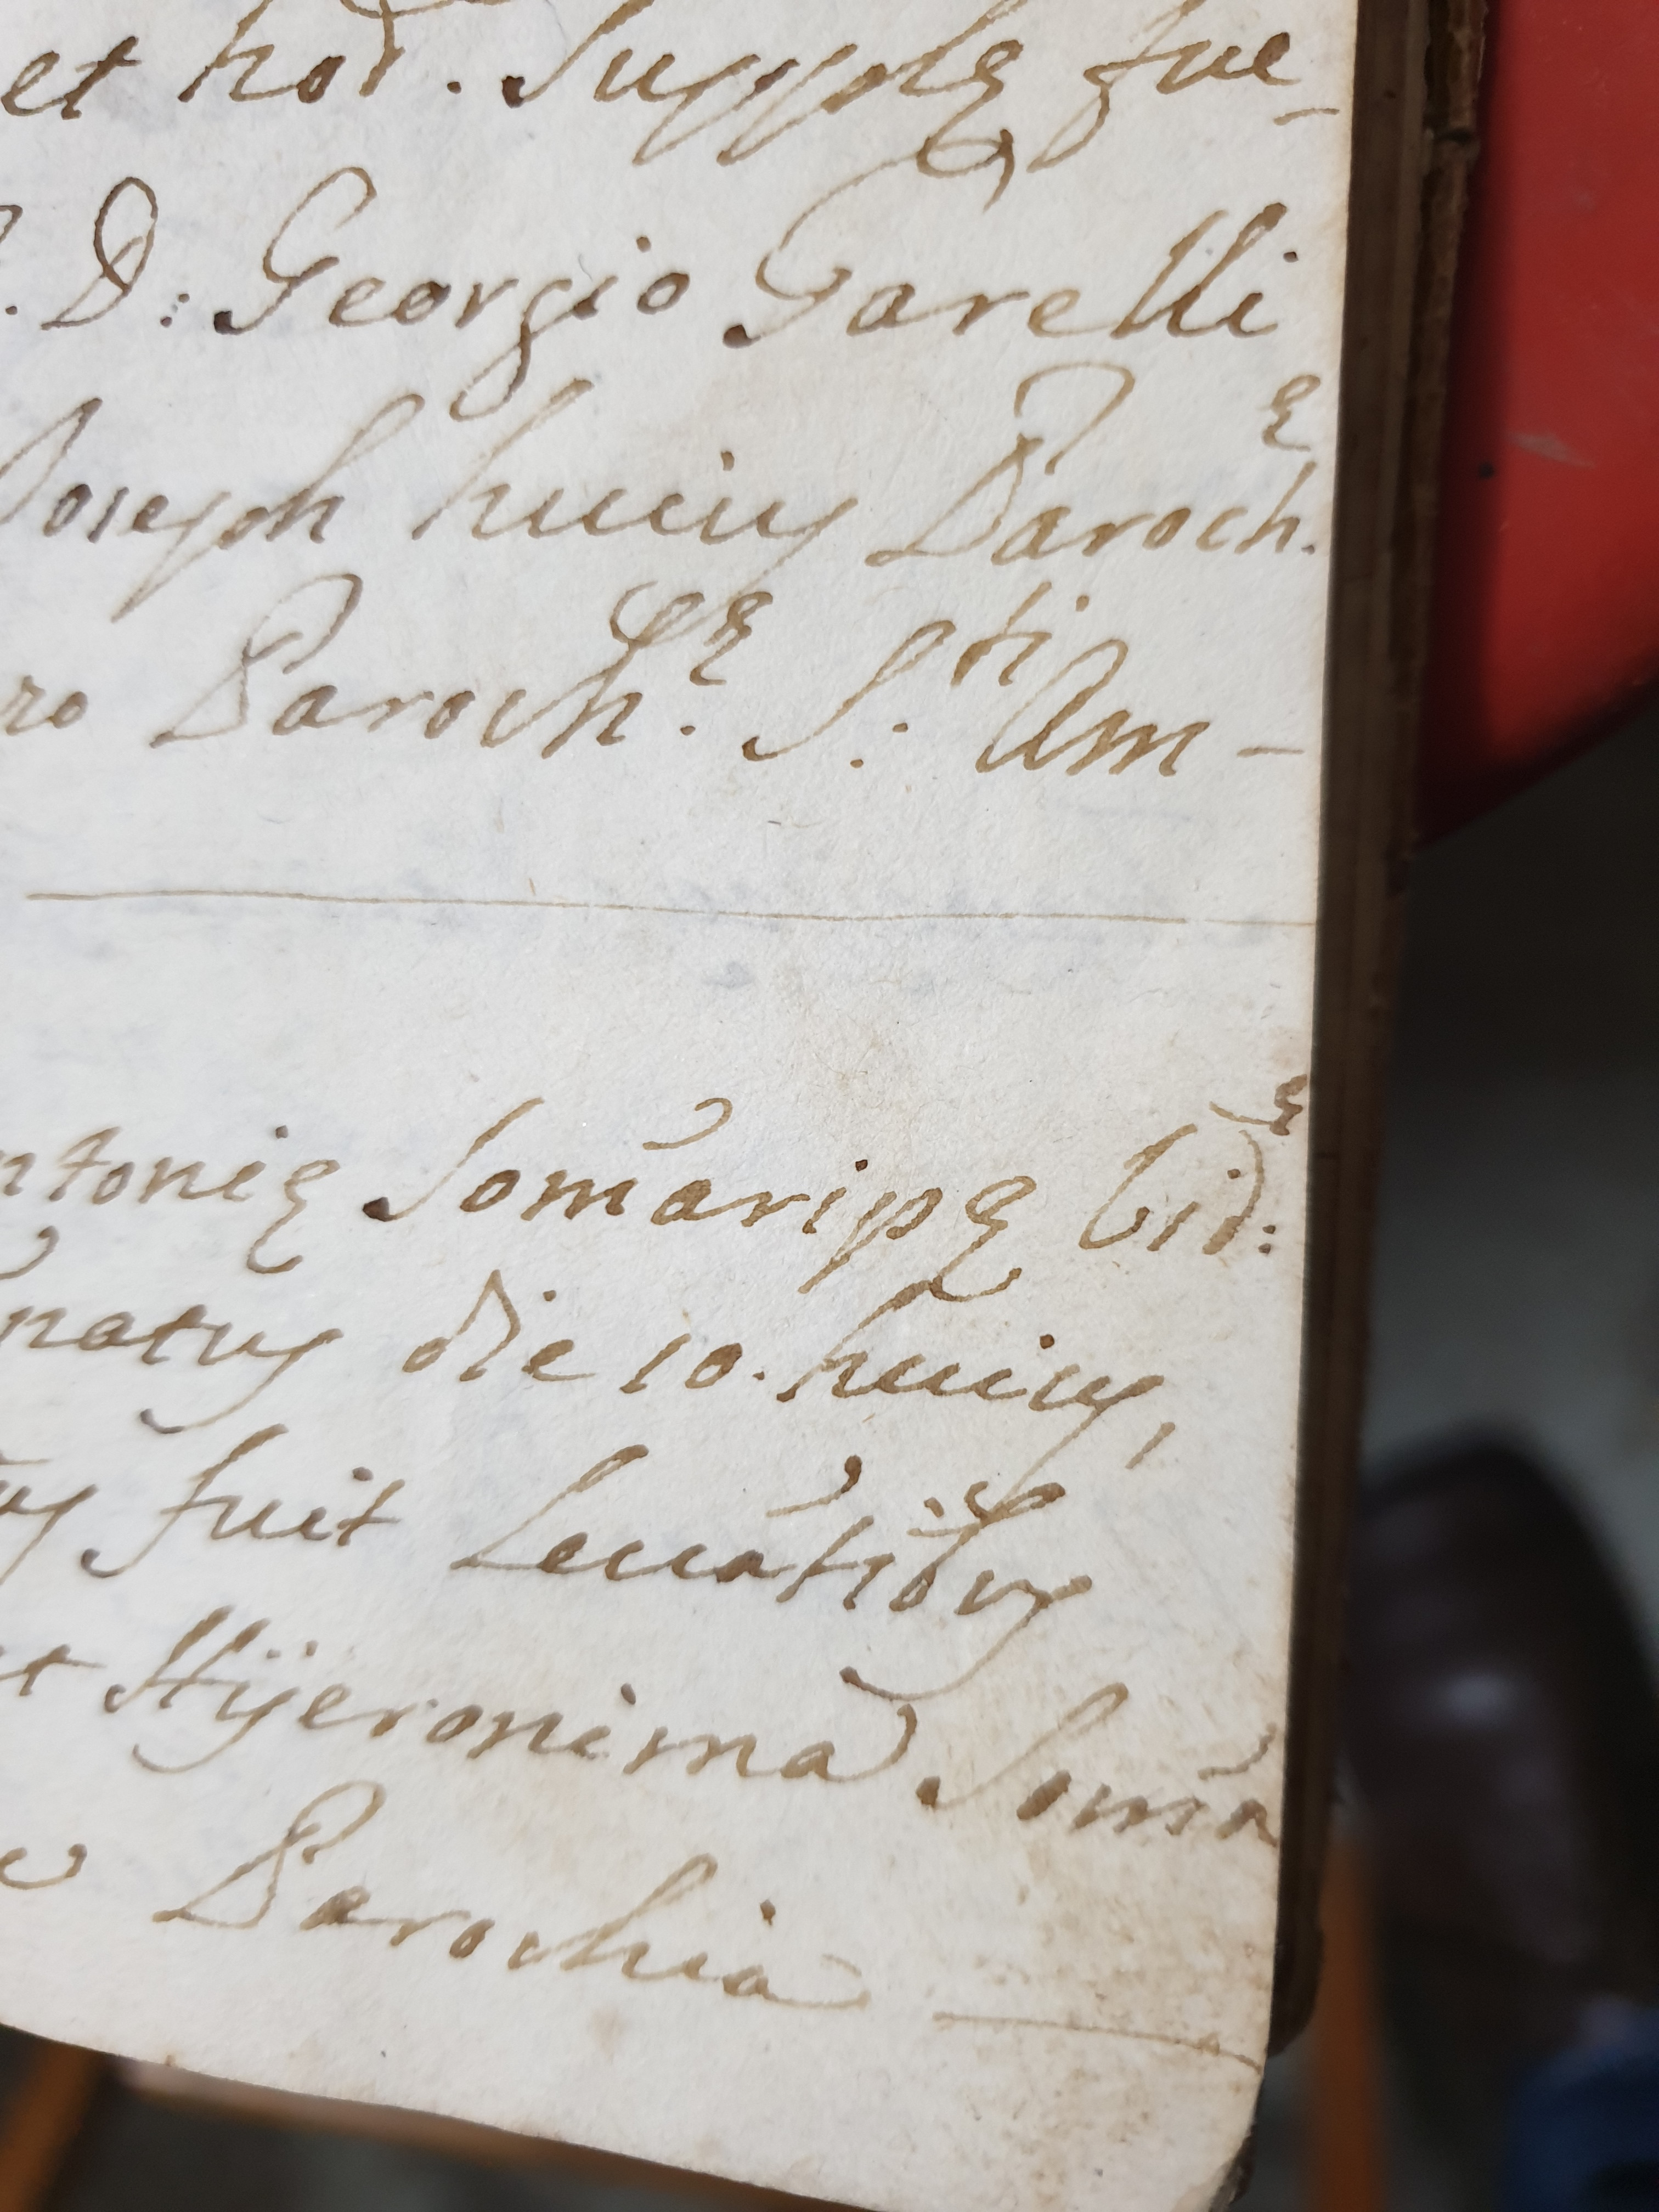 et hod. Supplę fue-
D: Georgio Garelli
Joseph huius Paroch.ę
ro Paroch.ę S.ti Am-
ntonię Som̃aripę Vid:ę
natus die 10. huius,
us fuit Leuãtibus
et Hÿeronima Som̃a
Parochia